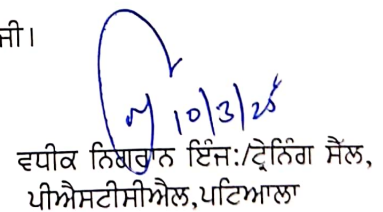 ਜੀ।
10/3/25
ਵਧੀਕ ਨਿਗਰਾਨ ਇੰਜ:/ਟ੍ਰੇਨਿੰਗ ਸੈੱਲ,
ਪੀਐਸਟੀਸੀਐਲ,ਪਟਿਆਲਾ